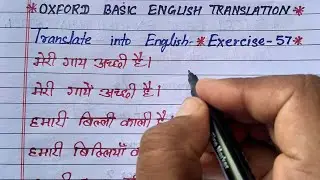 *OXFORD BASIC ENGLISH TRANSLATION*
Translate into English-*Exercise-57*
मेरी गाय अच्छी है।
मेरी गायें अच्छी है।
हमारी बिल्ली काली है
हमारी बिल्लियाँ का